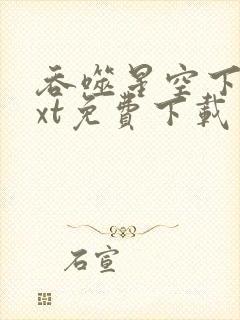 吞噬星空下
xt免費下載
石宣